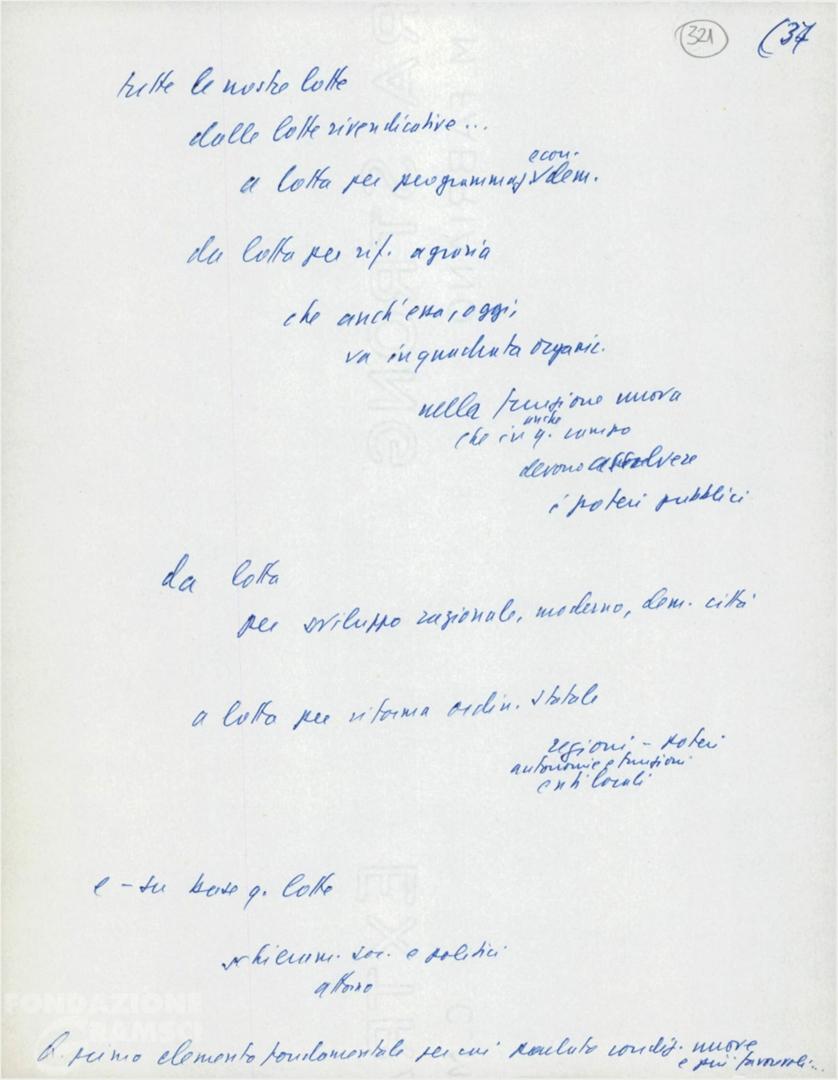 321 (37
tutte le nostre lotte
dalle lotte rivendicative...
econ.
a lotta per programmaz. dem.
da lotta per rif. agraria
che anch'essa, oggi,
va inquadrata organic.
nella funzione nuova
anche
che in q. campo
devono assolvere
i poteri pubblici
da lotta
per sviluppo razionale, moderno, dem. città
a lotta per riforma ordin. statale
regioni - poteri
autonomie e funzioni
enti locali
e - su base q. lotte
schieram. soc. e politici
attorno
Q. primo elemento fondamentale per cui parlato condiz. nuove
e più favorevoli...
FONDAZIONE
GRAMSCI